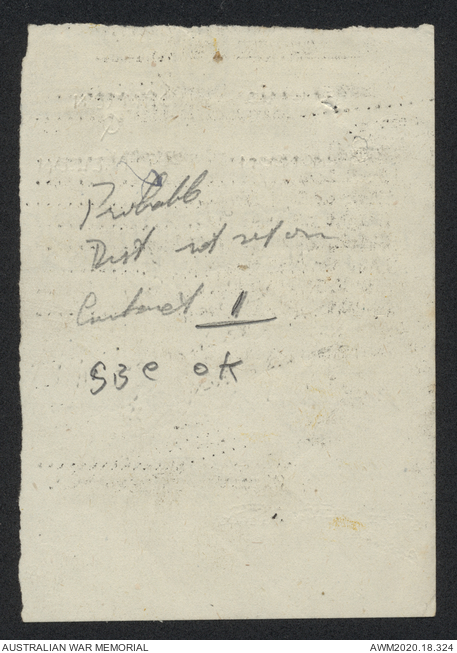 Probable
not return
Contact 1
SBC OK
AUSTRALIAN WAR MEMORIAL
AWM2020.18.324